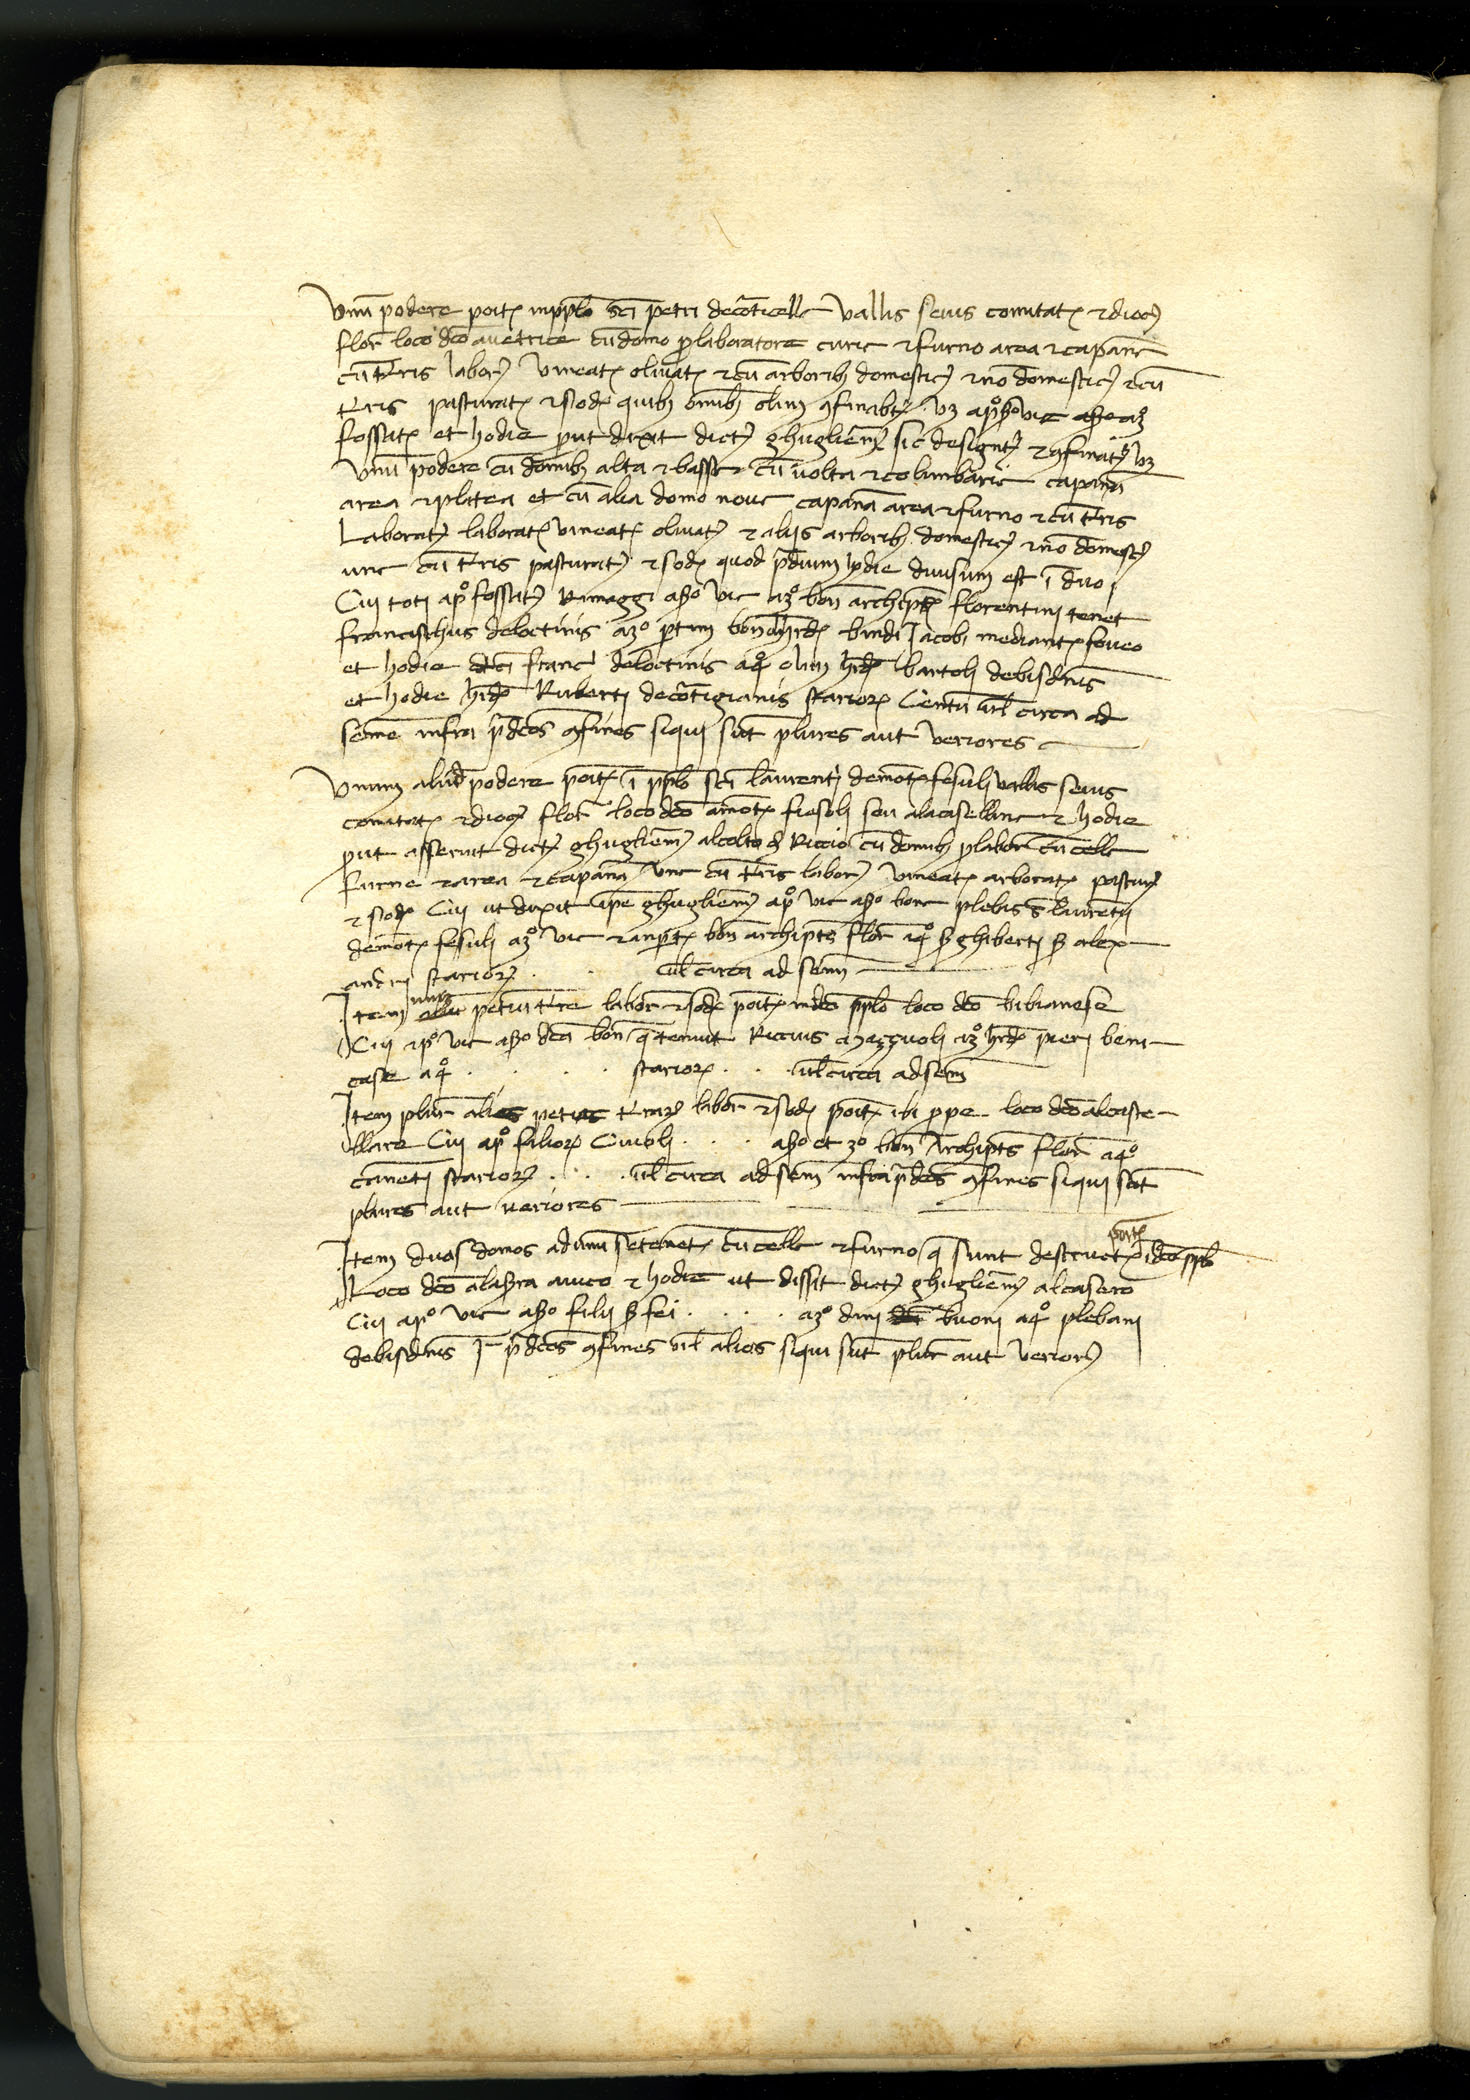 Unum podere posit. in pplo sci petri de conticelle vallis sevis comitat. et dioc.
flor. loco dco avetrice cu domo p laboratore curia et furno area et capanna
cu tris labor. vineat. olivat. et cu arborib; domestic. et no domestic. et cu
tris pasturat. et sod. quib; omib; olim cfinabt. vz
fossat. et hodie prout dixit dict. ghuglielm. sic designt. et cfinat. vz
Unu podere cu domib; alta et bassa cu volta et columbaria capanna
area et platea et cu alia domo nova capanna area et furno et cu tris
laborat. vineat. olivat. et aliis arborib; domestic. et no domest.
una cu tris pasturat. et sod. quod pdium hodie divisum est i duo
Cui toti a po fossat. Rimaggi a 2o via a 3o bon. archipt. florentini tenet
francischus de loctinis a 3o ptim bon. hrd. bindi Jacobi mediante foveo
et hodie dci franc. de loctinis a 4o olim hrd. bartoli de bisdnis
et hodie hrd. Ruberti de cotigianis starior. Centu vl circa ad
seme infra pdcos cfines siqui sut plures aut veriores
Unum aliud podere posit. i pplo sci laurentii de mote fesuli vallis sevis
comitat. et dioc. flor. loco dco a mote fiesoli seu ala casellina et hodie
prout asseruit dict. ghuglielm. al colto d. Riccio cu domib; p labor. cu cella
furno et area et capanna una cu tris labor. vineat. arborat. pastur.
et sod. Cui ut dixit ipe ghuglielm. a po via a 2o bona plebis s. laurentii
de mote fesuli a 3o via et in pte bon. archipts flor. a 4o s. ghiberti s. alex-
andri starior. . . vl circa ad sem
Item unu petiu tre labor. et sod. posit. in dco pplo loco dco bibianese
Cui a po via a 2o dca bon. q tenuit Riccius mazzuoli a 3o hrd. pieri beni-
case a 4o . . . . starior. . . vl circa ad sem
Item plur. alias petias trar. labor. et sod. posit. ibi ppe loco dco al caste-
llare Cui a po filior. Ciuoli . . . a 2o et 3o bon. Archipts flor. a 4o
caneti starior. . . . vl circa ad sem infra pdcos cfines siqui sut
plures aut veriores
Item duas domos ad unu se tenet. cu cella et furno q sunt destruct. posit. i dco pplo
Loco dco et hodie ut dissit dict. ghuglielm. al casero
Cui a po via a 2o filii s. fei . . . . a 3o dni buoni a 4o plebani
de bisdnis I pdcos cfines vl alios siqui sut plur. aut verior.